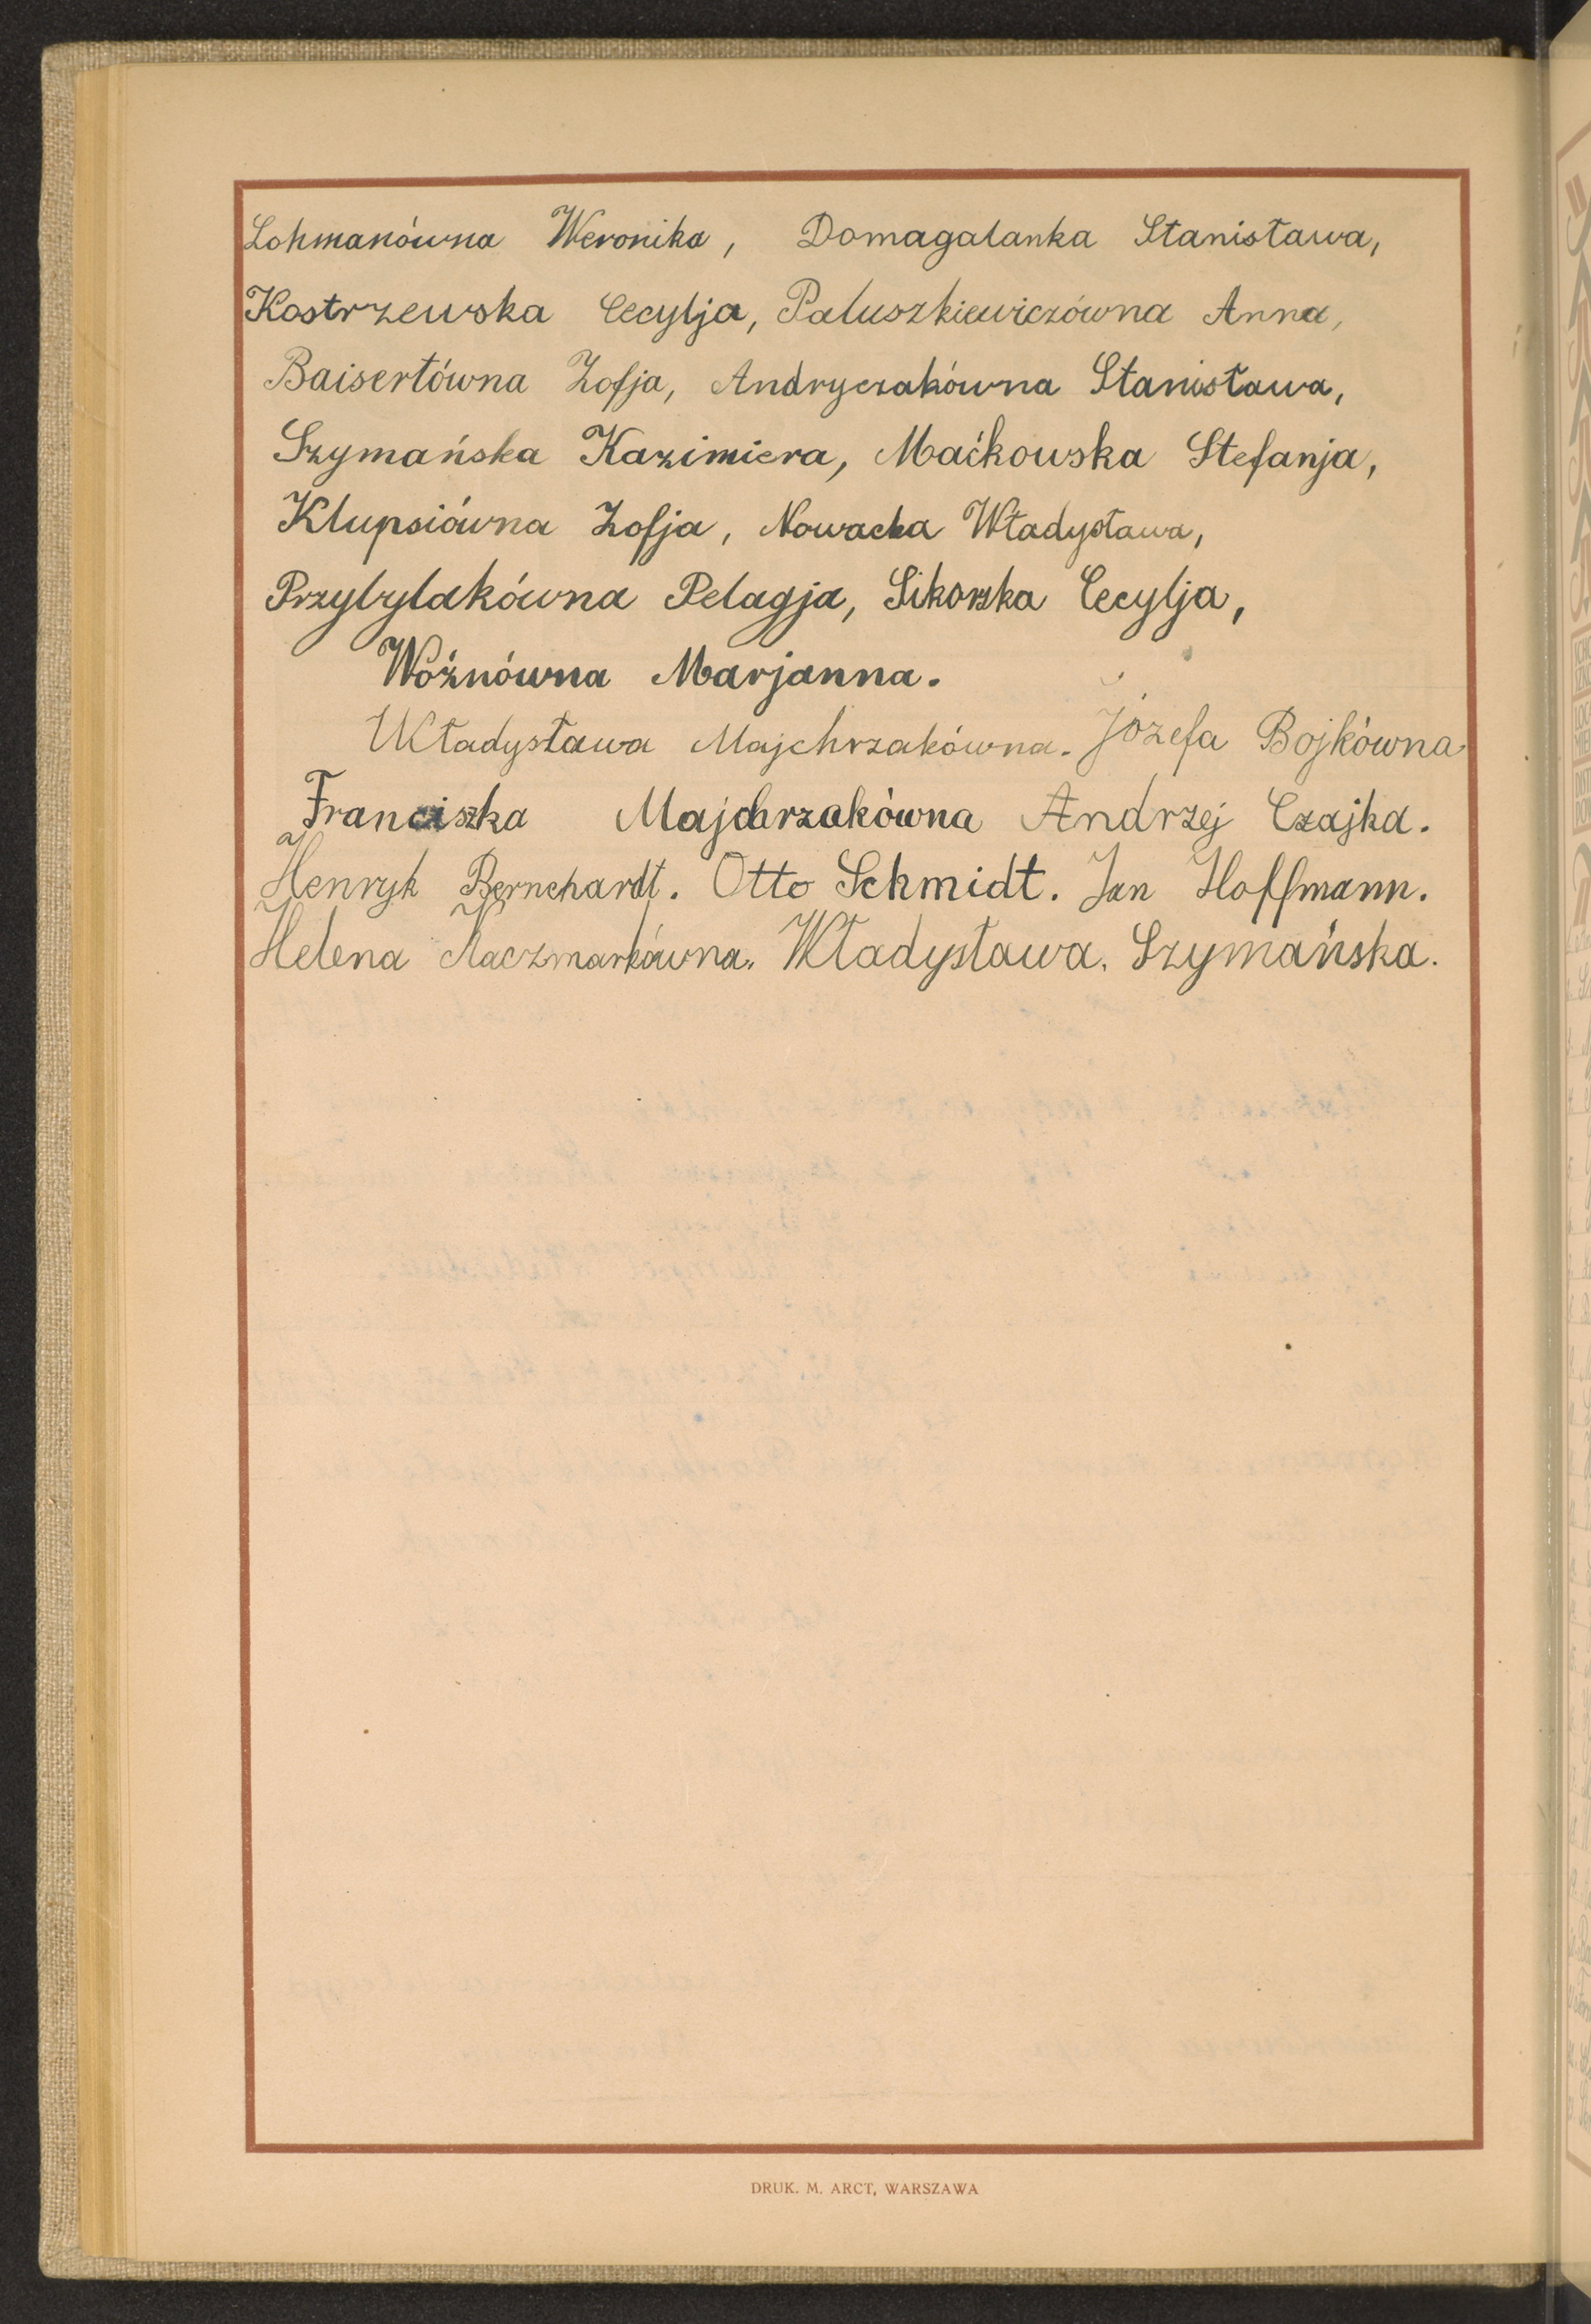 Lohmanówna Weronika, Domagalanka Stanisława,
Kostrzewska Cecylja, Paluszkiewiczówna Anna,
Baisertówna Zofja, Andryczakówna Stanisława,
Szymańska Kazimiera, Maćkowska Stefanja,
Klupsiówna Zofja, Nowacka Władysława,
Przybylakówna Pelagja, Sikorska Cecylja,
Woźnówna Marjanna.
Władysława Majchrzakówna. Józefa Bojkówna
Franciszka Majchrzakówna Andrzej Czajka.
Henryk Bernchardt. Otto Schmidt. Jan Hoffmann.
Helena Kaczmarkówna. Władysława. Szymańska.
DRUK. M. ARCT, WARSZAWA